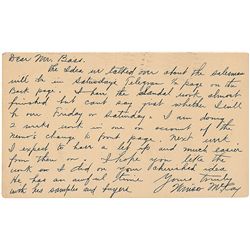 Dear Mr. Bass.
the idea we talked over about the salesman
will be in Saturday's Telegram 2 page on the
Back page. I have the Sandal work almost
finished but can't say just whether I will
be over Friday or Saturday. I am doing
2 weeks work in one on account of the
news's change to Ford page. Next week
I expect to have a let up and much easier
from then on. I hope you liked the
work on I did on your cherished idea
He has an awful time
Yours truly
with his samples and buyers.
Winsor McCay